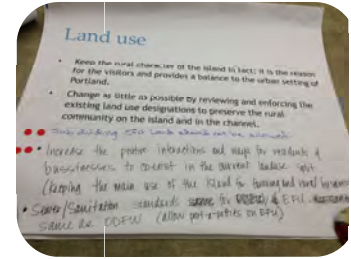 Land use
• Keep the rural character of the island in tact; it is the reason
for the visitors and provides a balance to the urban setting of
Portland.
• Change as little as possible by reviewing and enforcing the
existing land use designations to preserve the rural
community on the island and in the channel.
EFU land should not be allowed
• Increase the positive interactions and ways for residents &
businesses to coexist in the current landuse split
(keeping the main use of the island for farming and rural
• Sewer/Sanitation standards same for & EFU
same as ODFW (allow port-a-potties on EFU)